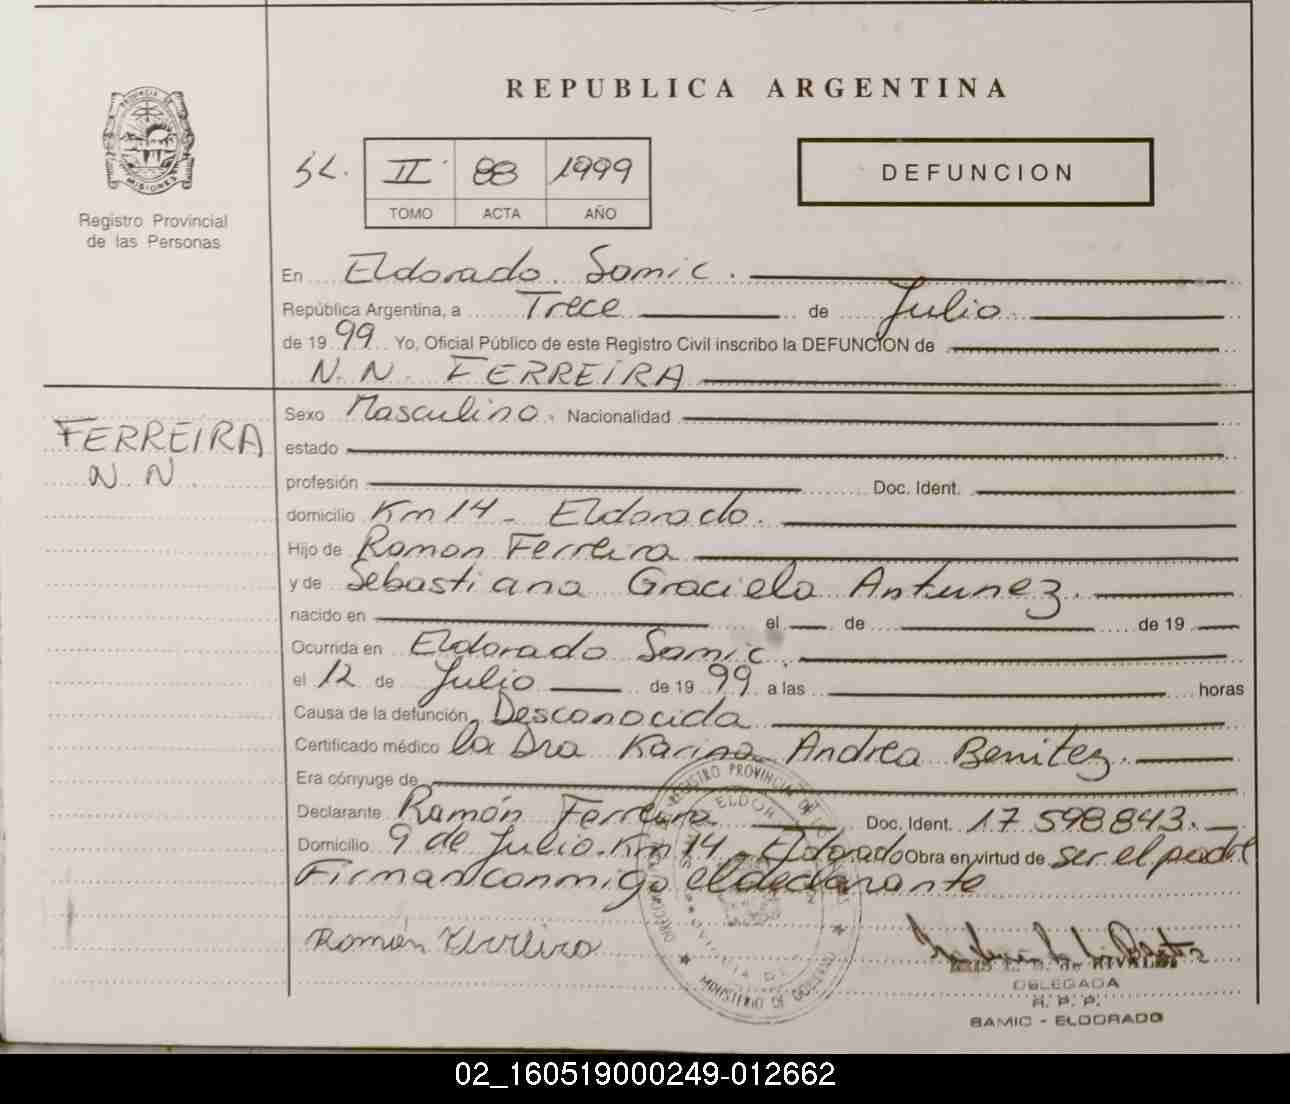 REPUBLICA ARGENTINA
PROVINCIA DE
MISIONES
Registro Provincial
de las Personas
II 88 1999
TOMO ACTA AÑO
DEFUNCION
En Eldorado Samic.
República Argentina, a Trece de Julio
de 1999 Yo, Oficial Público de este Registro Civil inscribo la DEFUNCION de
N. N. FERREIRA
FERREIRA
N. N.
Sexo Masculino. Nacionalidad
estado
profesión Doc. Ident.
domicilio Km 14 - Eldorado.
Hijo de Ramon Ferreira
y de Sebastiana Graciela Antunez.
nacido en el de de 19
Ocurrida en Eldorado Samic.
el 12 de Julio de 1999 a las horas
Causa de la defunción Desconocida
Certificado médico la Dra Karina Andrea Benitez.
Era cónyuge de
Declarante Ramón Ferreira Doc. Ident. 17 598.843.
Domicilio 9 de Julio Km 14 - Eldorado Obra en virtud de ser el padre
Firman conmigo el declarante
Román Ferreira
DELEGADA
R. P. P.
SAMIC - ELDORADO
MINISTERIO DE GOBIERNO
02_160519000249-012662